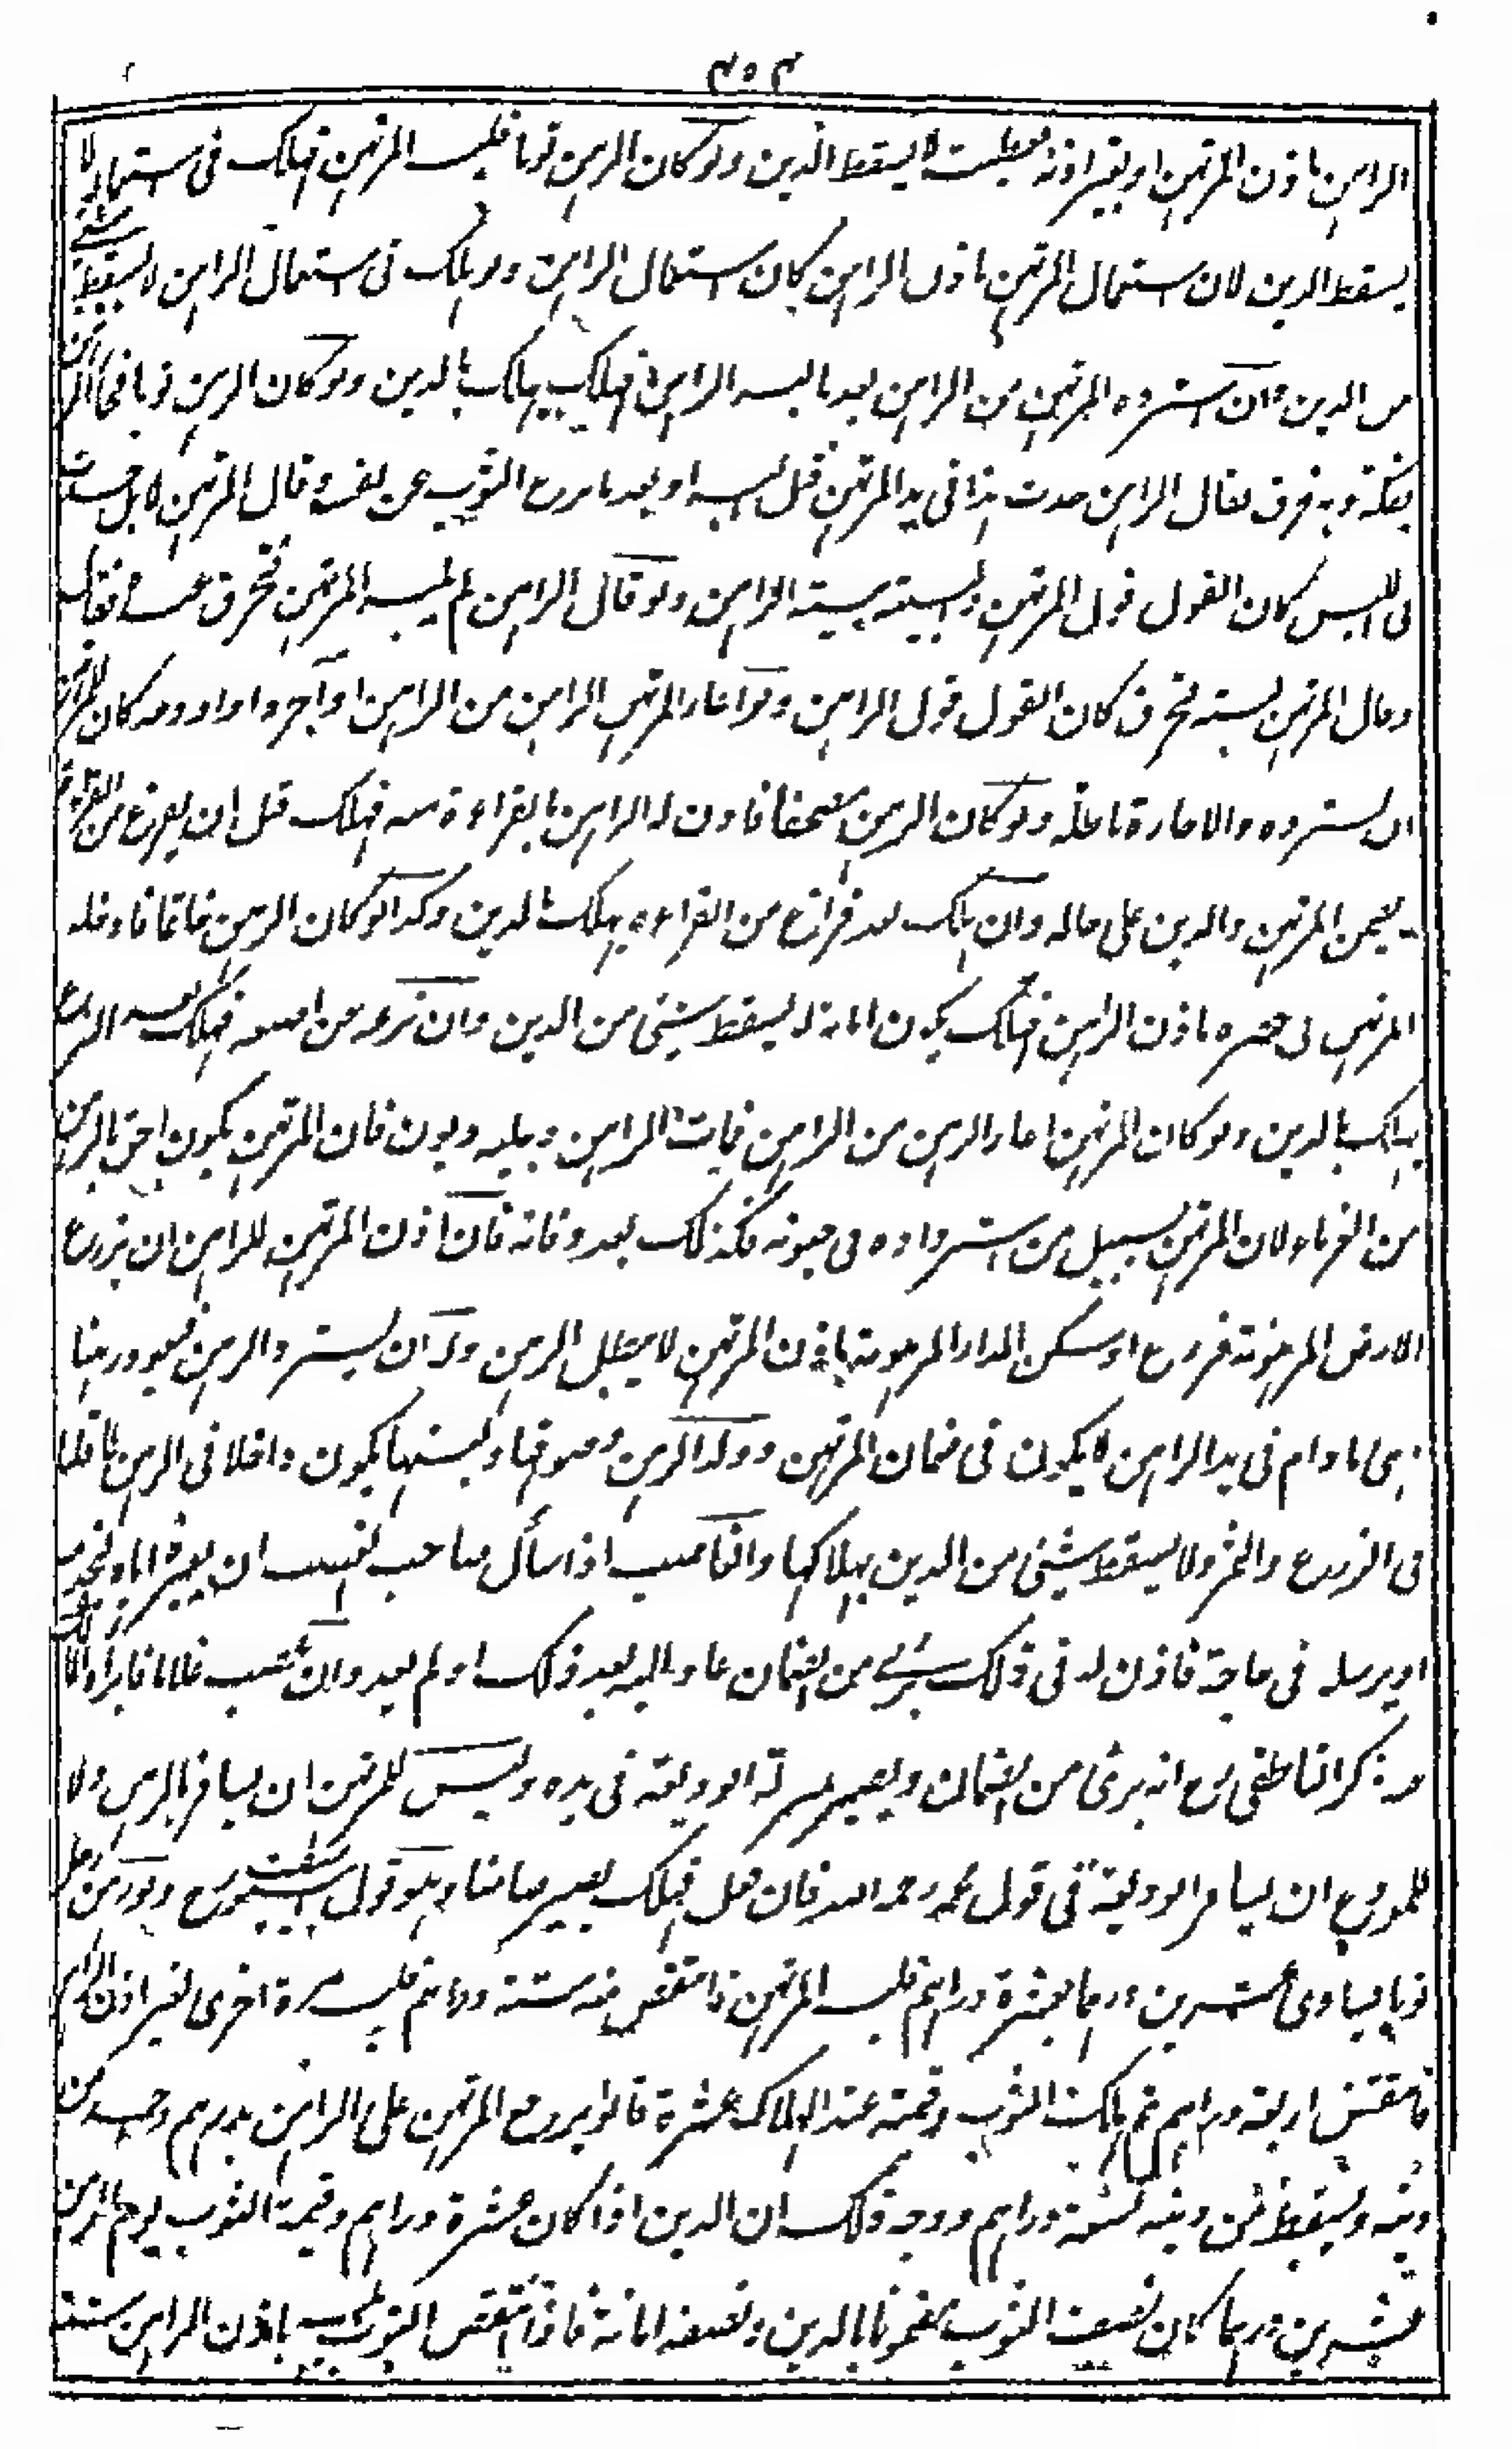 ٣٥٣
الراهن باذن المرتهن او بغير اذنه فعطبت لا يسقط الدين ولو كان الرهن ثوبا فلبسه المرتهن فهلك فى استعماله لا
يسقط الدين لان استعمال المرتهن باذن الراهن كان استعمال الراهن ولو هلك فى استعمال الراهن لا يسقط شئ
من الدين وان استرده المرتهن من الراهن بعد ما لبسه الراهن فهلك يهلك بالدين ولو كان الرهن ثوبا فجاء الراهن
يفتكه وبه خرق فقال الراهن حدث هذا فى يد المرتهن قبل لبسه او بعد ما نزع الثوب عن نفسه وقال المرتهن لا بل حدث
فى اللبس كان القول قول المرتهن والبينة بينة الراهن ولو قال الراهن لم يلبسه المرتهن فتخرق
وقال المرتهن لبسته فتخرق كان القول قول الراهن ولو اعار المرتهن الرهن من الراهن او آجره او اودعه كان للمرتهن
ان يسترده والاجارة باطلة ولو كان الرهن مصحفا فاذن له الراهن بالقراءة منه فهلك قبل ان يفرغ من القراءة لا
يضمن المرتهن والدين على حاله وان هلك بعد فراغ من القراءة يهلك بالدين وكذا لو كان الرهن خاتما فادخله
المرتهن فى خنصره باذن الراهن فهلك يكون امانة لا يسقط شيئ من الدين وان نزعه من اصبعه فهلك بعد النزع
يهلك بالدين ولو كان المرتهن اعار الرهن من الراهن فمات الراهن وعليه ديون فان المرتهن يكون احق بالرهن
من الغرماء لان المرتهن بسبيل من استرداده فى حيوته فكذلك بعد وفاته فان اذن المرتهن للراهن ان يزرع
الارض المرهونة فزرع او سكن الدار المرهونة باذن المرتهن لا يبطل الرهن وله ان يسترد الرهن فيعود رهنا
وهى ما دام فى يد الراهن لا يكون فى ضمان المرتهن وولد الرهن وصوفها ولبنها يكون داخلا فى الرهن كما قلنا
فى الزرع والثمر ولا يسقط شيئ من الدين بهلاكها والغاصب اذا سأل صاحب الغصب ان يعيره اياه
او يرسله فى حاجة فاذن له فى ذلك برئ من الضمان عاد اليه بعد ذلك او لم يعد وان غصب غلاما
وذكر الناطفى رح انه برئ من الضمان ويصير بمنزلة الوديعة فى يده وليس للمرتهن ان يسافر بالرهن ولا
للمودع ان يسافر بالوديعة فى قول محمد رحمه الله فان فعل فهلك يصير ضامنا وهو قول ابى يوسف رح ولو رهن رجل
ثوبا يساوى عشرين درهما بعشرة دراهم فلبسه المرتهن فانتقص منه ستة دراهم فلبسه مرة اخرى بغير اذن الراهن
فانتقص اربعة دراهم ثم هلكت الثوب وقيمته عند الهلاك عشرة قالوا يرجع المرتهن على الراهن بدرهم واحد من
دينه ويسقط من دينه تسعة دراهم ووجه ذلك ان الدين اذا كان عشرة دراهم وقيمة الثوب يوم الرهن
عشرين درهما كان نصف الثوب مضمونا بالدين ونصفه امانة فاذا انتقص الثوب بلبسه باذن الراهن ستة